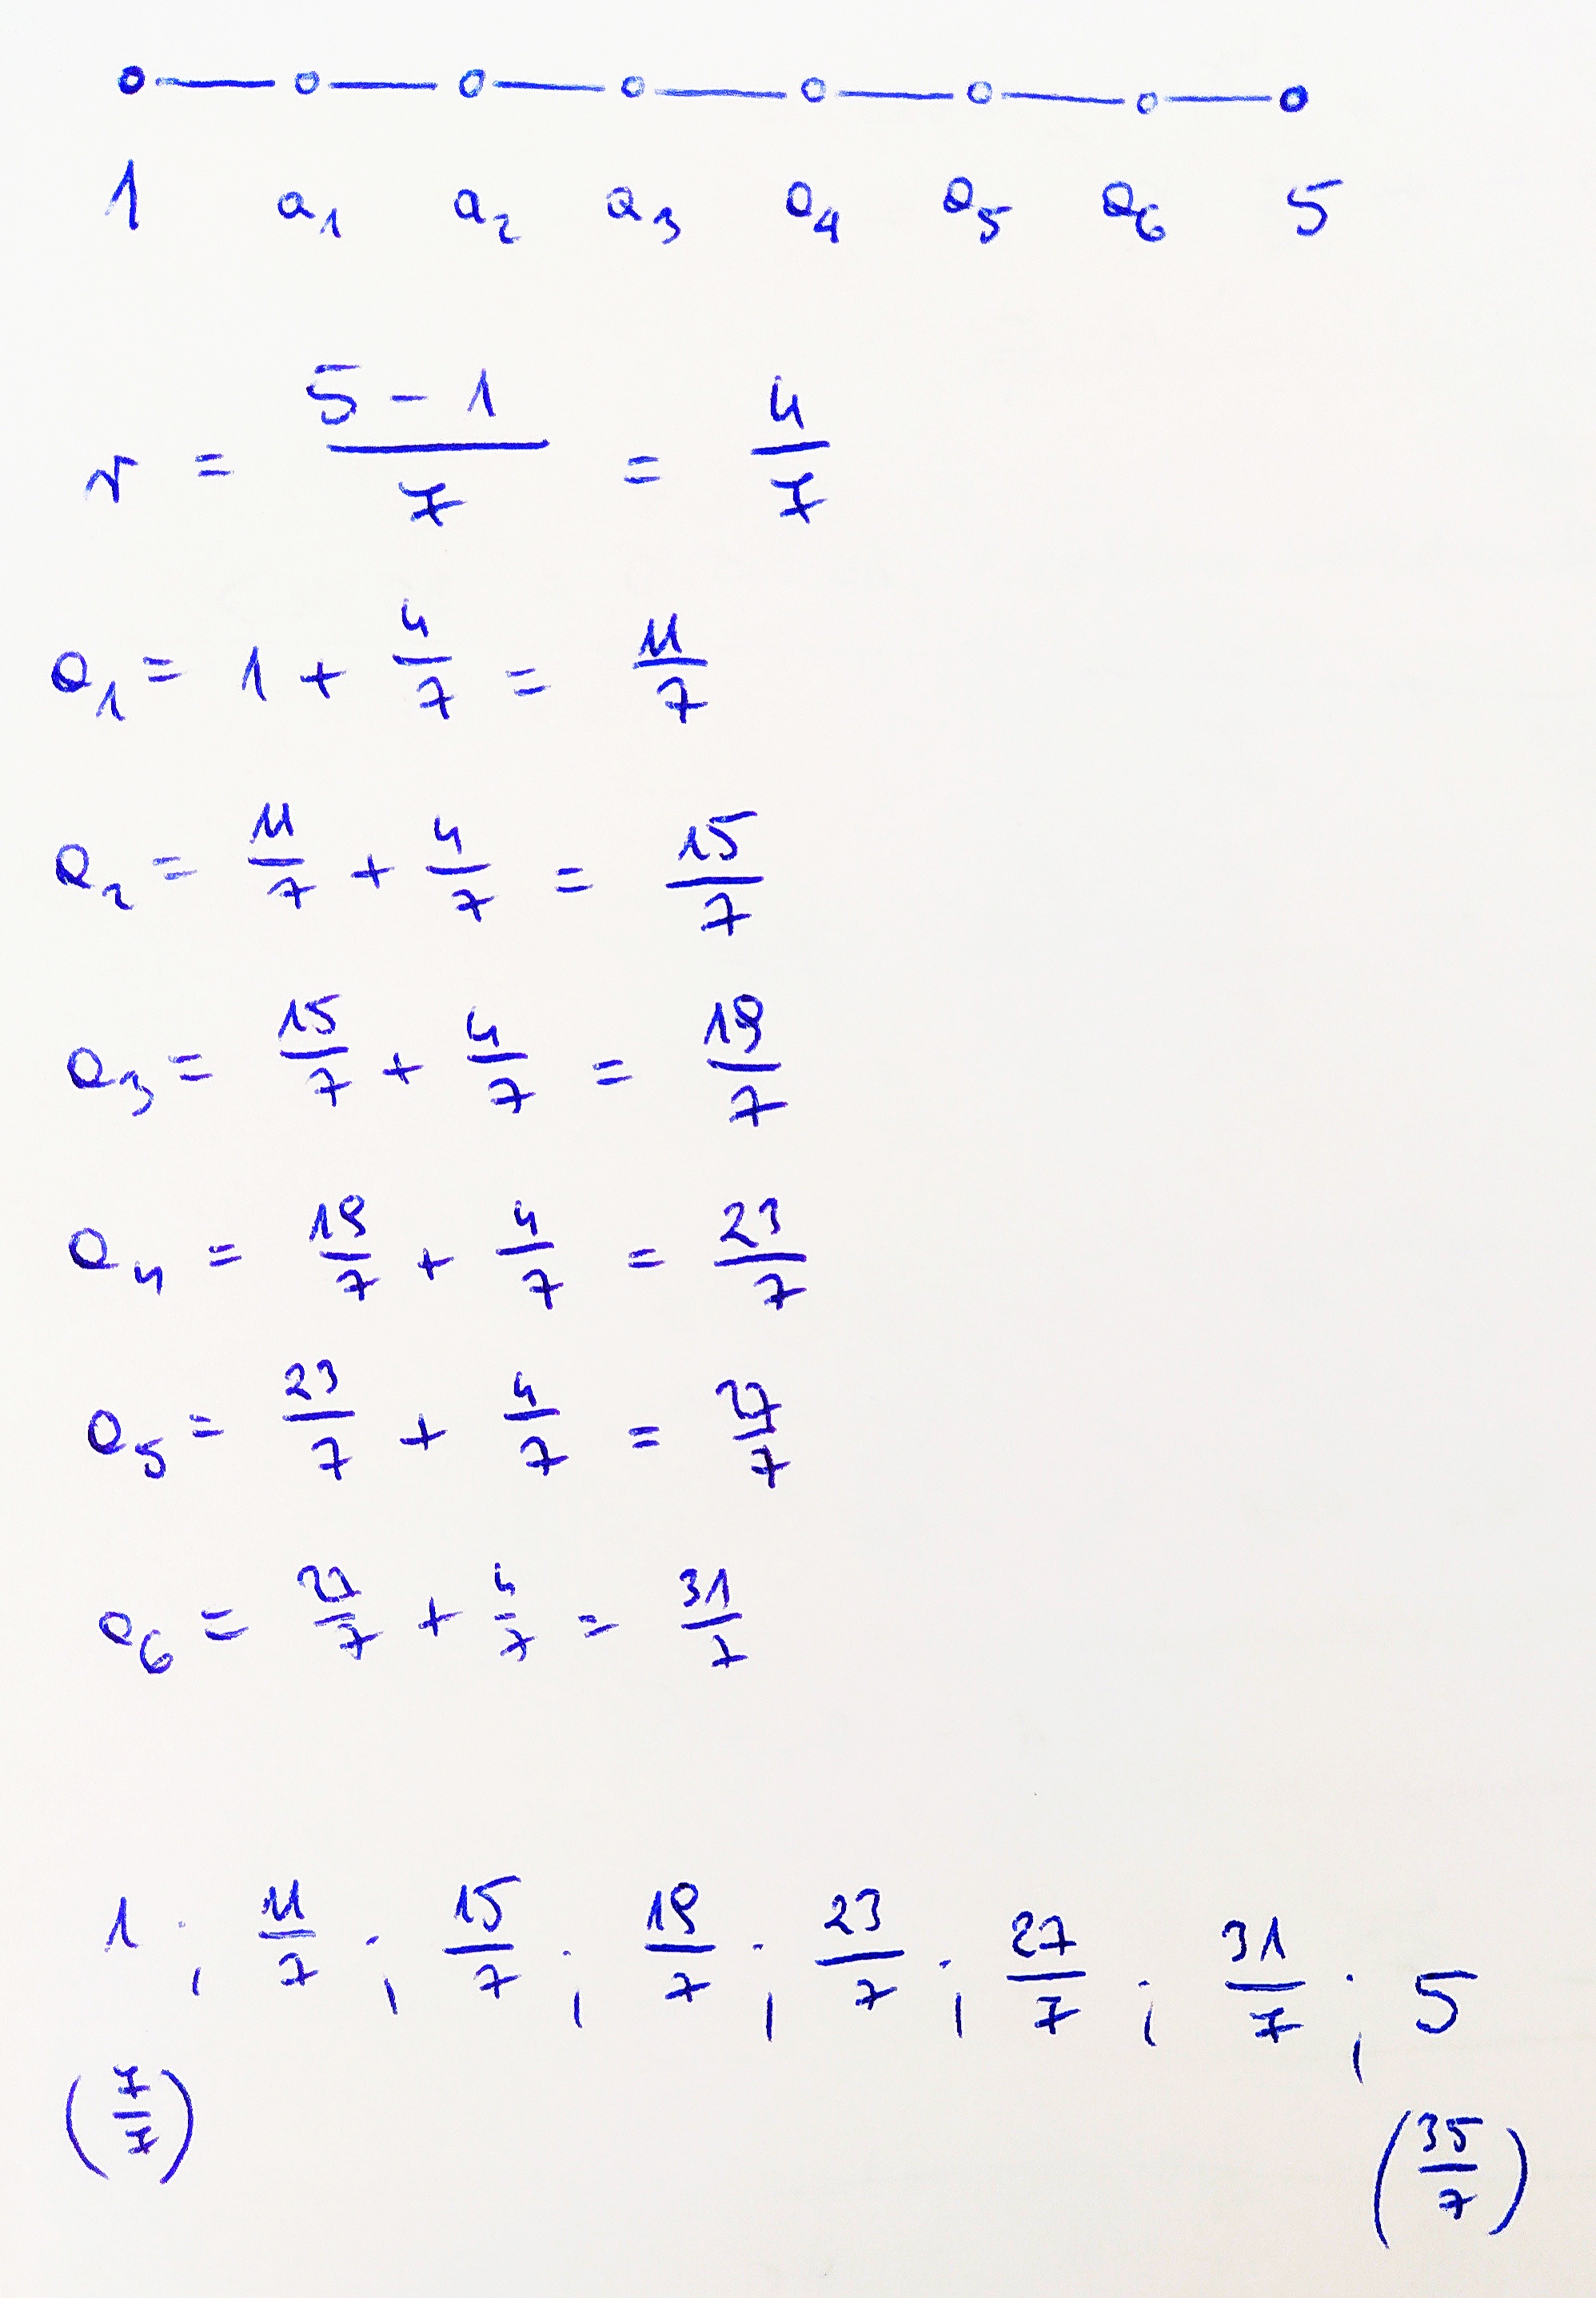 1 a₁ a₂ a₃ a₄ a₅ a₆ 5
r = (5 - 1)/7 = 4/7
a₁ = 1 + 4/7 = 11/7
a₂ = 11/7 + 4/7 = 15/7
a₃ = 15/7 + 4/7 = 19/7
a₄ = 19/7 + 4/7 = 23/7
a₅ = 23/7 + 4/7 = 27/7
a₆ = 27/7 + 4/7 = 31/7
1 ; 11/7 ; 15/7 ; 19/7 ; 23/7 ; 27/7 ; 31/7 ; 5
(7/7) (35/7)